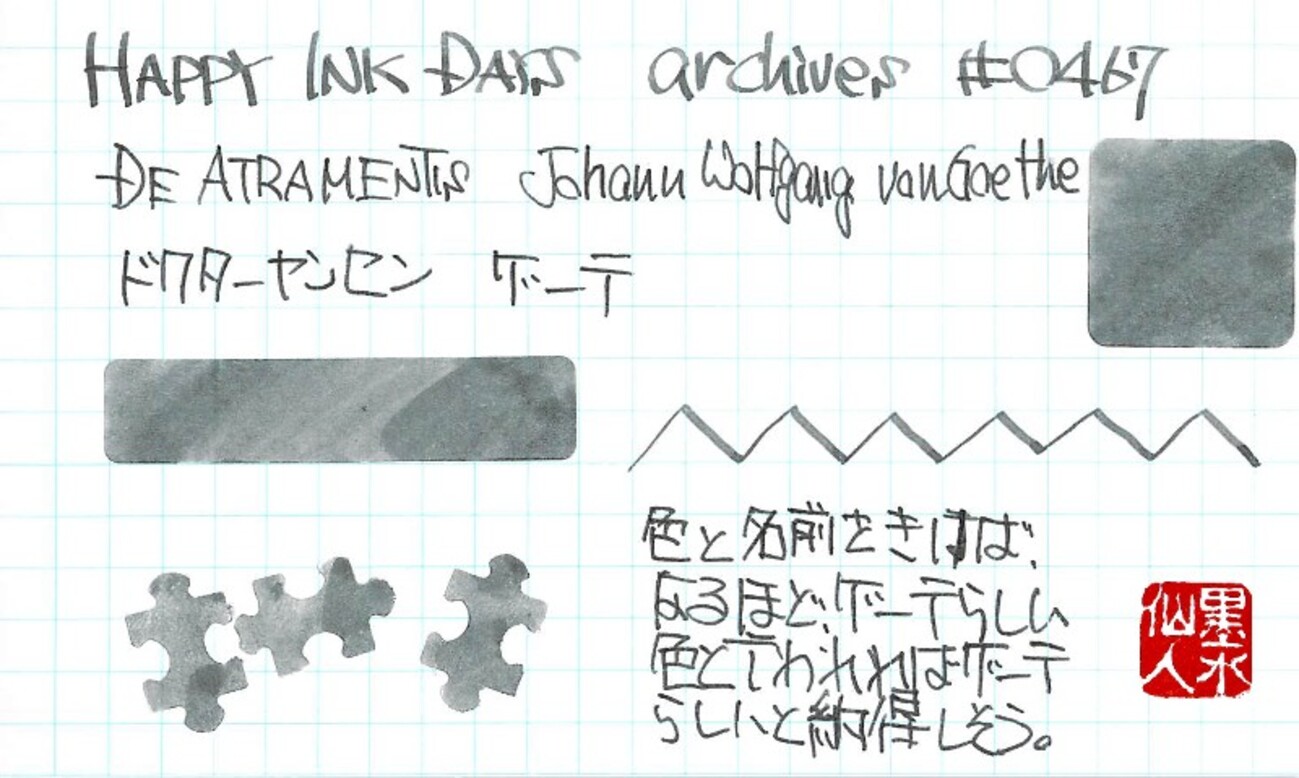 HAPPY INK DAYS archives #0467
DE ATRAMENTIS Johann Wolfgang von Goethe
ドクターヤンセン ゲーテ
色と名前をきけば、
なるほど、ゲーテらしい
色と言われればゲーテ
らしいと納得しそう。
墨水
仙人